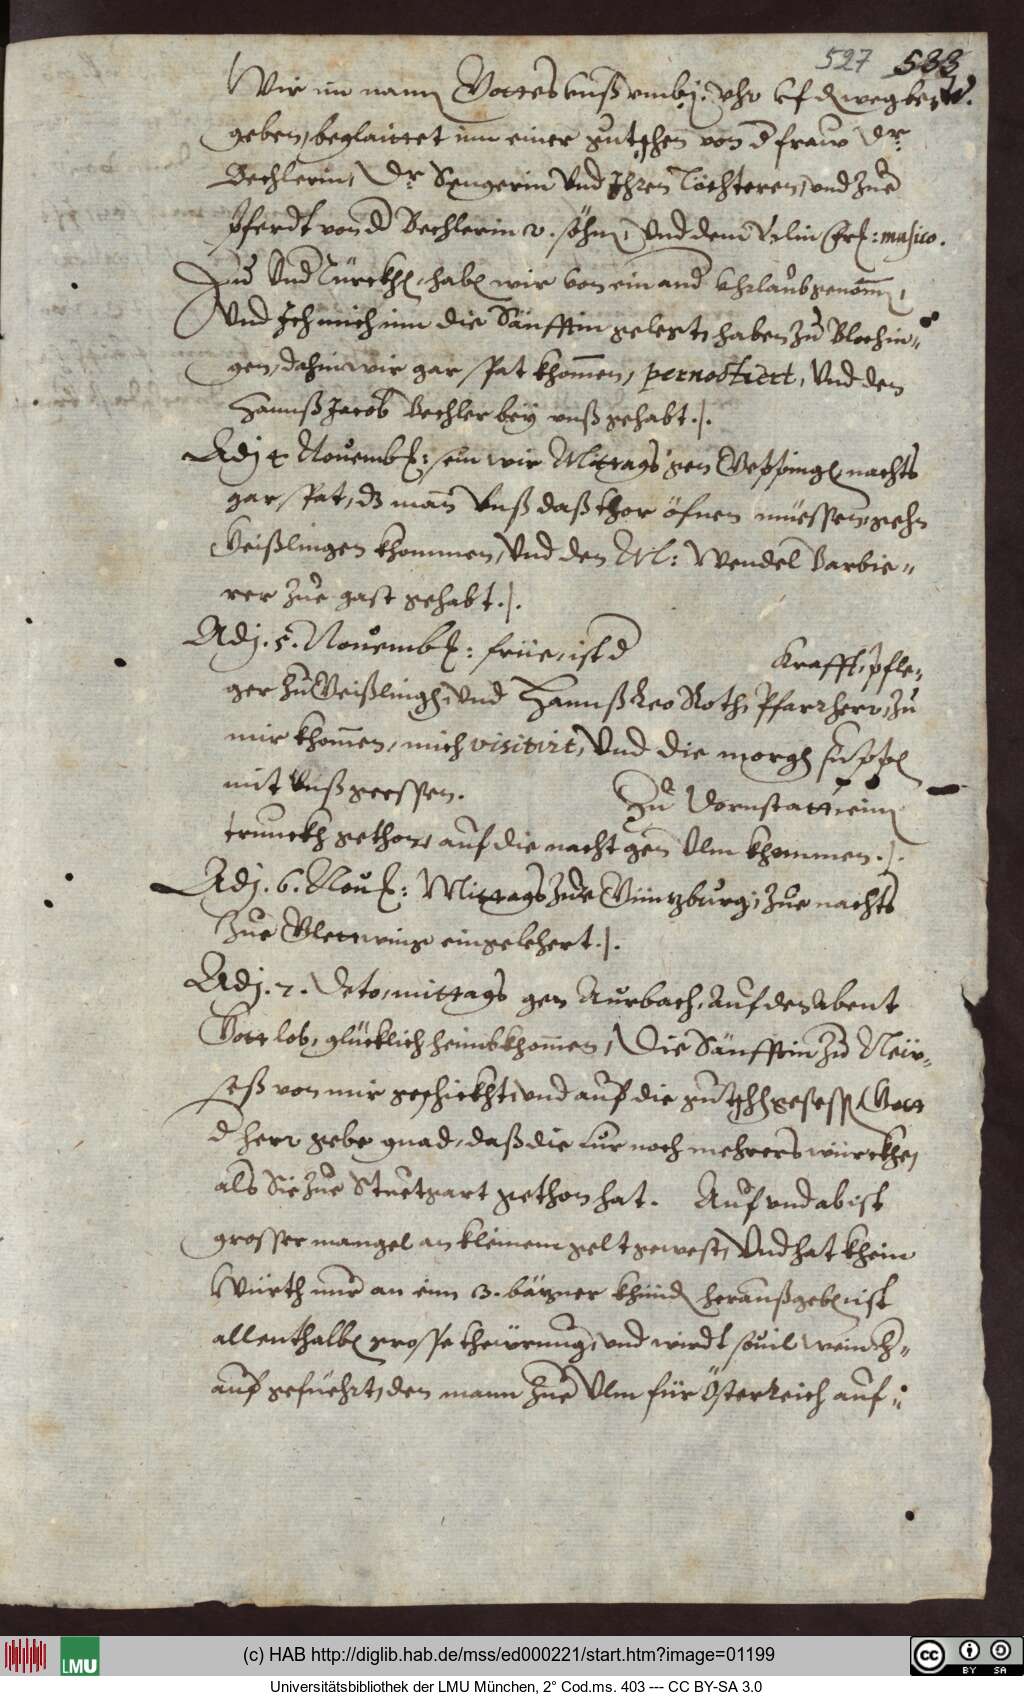 527 533
Wir im namen Gottes unß umb j. uhr uf den weg bege-
geben, beglaittet inn einer gutschen von der fraw Dr.
Bechlerin, Dr Sengerin und Ihren Töchteren, und zue
Pferdt von der Bechlerin 2. söhn, und dem
Zu Undtürckh, haben wir von einander uhrlaub genomen,
Und Ich mich inn die Sänfftin gelegt, haben zu Blochin=
gen, dahin wir gar spat khommen, pernoctiert, Und den
Hannß Jacob Bechler bey unß gehabt./.
Adj 4 Novemb: sein wir Mittags gen Geppingen, nachts
gar spat, dz man unß daß thor öfnen müessen, gehn
Geißlingen khommen, Und den M: Wendel Barbie=
rer zue gast gehabt./.
Adj. 5. Novemb: früe, ist der Krafft, pfle=
ger zu Geißlingen, und Hannß Leo Roth, Pfarrherr, zu
mir khommen, mich visitirt, Und die morgen suppen
mit unß geessen. Zu Dornstatt, ein
trunckh gethon, auf die nacht gen Ulm khommen./.
Adj. 6. Nov: Mittags zue Güntzburg, zue nachts
zue Glettwing eingekhert./.
Adj. 7. Deto, mittags gen Aurbach, Auf den Abent
Gott lob, glücklich heimb khommen, Die Sänfftin zu Neü=
seß von mir geschickht, und auf die gutschen gesessen, Gott
der herr gebe gnad, daß die Cur noch mehrers würckhe,
als Sie zue Stuetgart gethon hat. Auf und ab ist
grosser mangel an kleinem gelt gewest, Und hat khein
Würth nur an ein 3. bäzner khünden herauß geben, ist
allenthalben grosse theürung, und wirdt sovil wein
auf gefüehrt, den mann zue Ulm für Österreich auf=
(c) HAB http://diglib.hab.de/mss/ed000221/start.htm?image=01199
LMU
cc BY SA
Universitätsbibliothek der LMU München, 2° Cod.ms. 403 --- CC BY-SA 3.0